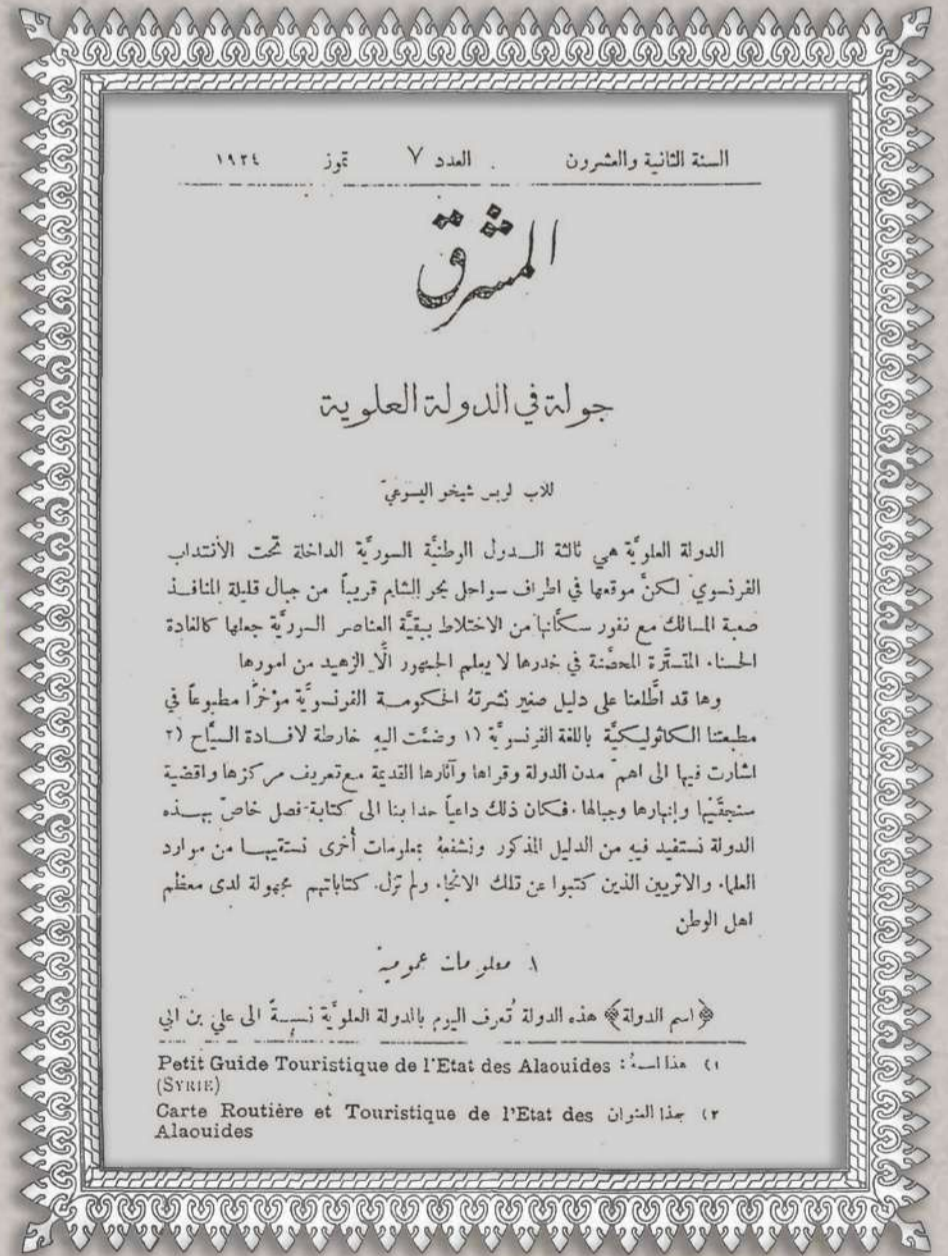 السنة الثانية والعشرون العدد ٧ تموز ١٩٢٤
المشرق
جولة في الدولة العلوية
للاب لويس شيخو اليسوعي
الدولة العلويَّة هي ثالثة الــدول الوطنيَّة السوريَّة الداخلة تحت الأنتداب
الفرنسوي لكنَّ موقعها في اطراف سواحل بحر الشام قريباً من جبال قليلة المنافــذ
صعبة المسالك مع نفور سكَّانها من الاختلاط ببقيَّة العناصر السوريَّة جعلها كالغادة
الحسناء المتستَّرة المحصَّنة في خدرها لا يعلم الجمهور الَّا الزهيد من امورها
وها قد اطَّلعنا على دليل صغير نشرتهُ الحكومــة الفرنسويَّة مؤخَّرًا مطبوعاً في
مطبعتنا الكاثوليكيَّة باللغة الفرنسويَّة (١ وضمَّت اليهِ خارطة لافــادة السيَّاح (٢
اشارت فيها الى اهمّ مدن الدولة وقراها وآثارها القديمة مع تعريف مركزها واقضية
سنجقَيْها وانهارها وجبالها. فكان ذلك داعياً حدا بنا الى كتابة فصل خاصّ بهــذه
الدولة نستفيد فيهِ من الدليل المذكور ونشفعهُ بمعلومات أُخرى نستقيهــا من موارد
العلماء والاثريين الذين كتبوا عن تلك الانحاء ولم تزل كتاباتهم مجهولة لدى معظم
اهل الوطن
١ معلومات عمومية
﴿اسم الدولة﴾ هذه الدولة تُعرف اليوم بالدولة العلويَّة نسبــةً الى علي بن ابي
١) هذا اسمهُ: Petit Guide Touristique de l'Etat des Alaouides
(SYRIE)
٢) بهذا العنوان Carte Routière et Touristique de l'Etat des
Alaouides